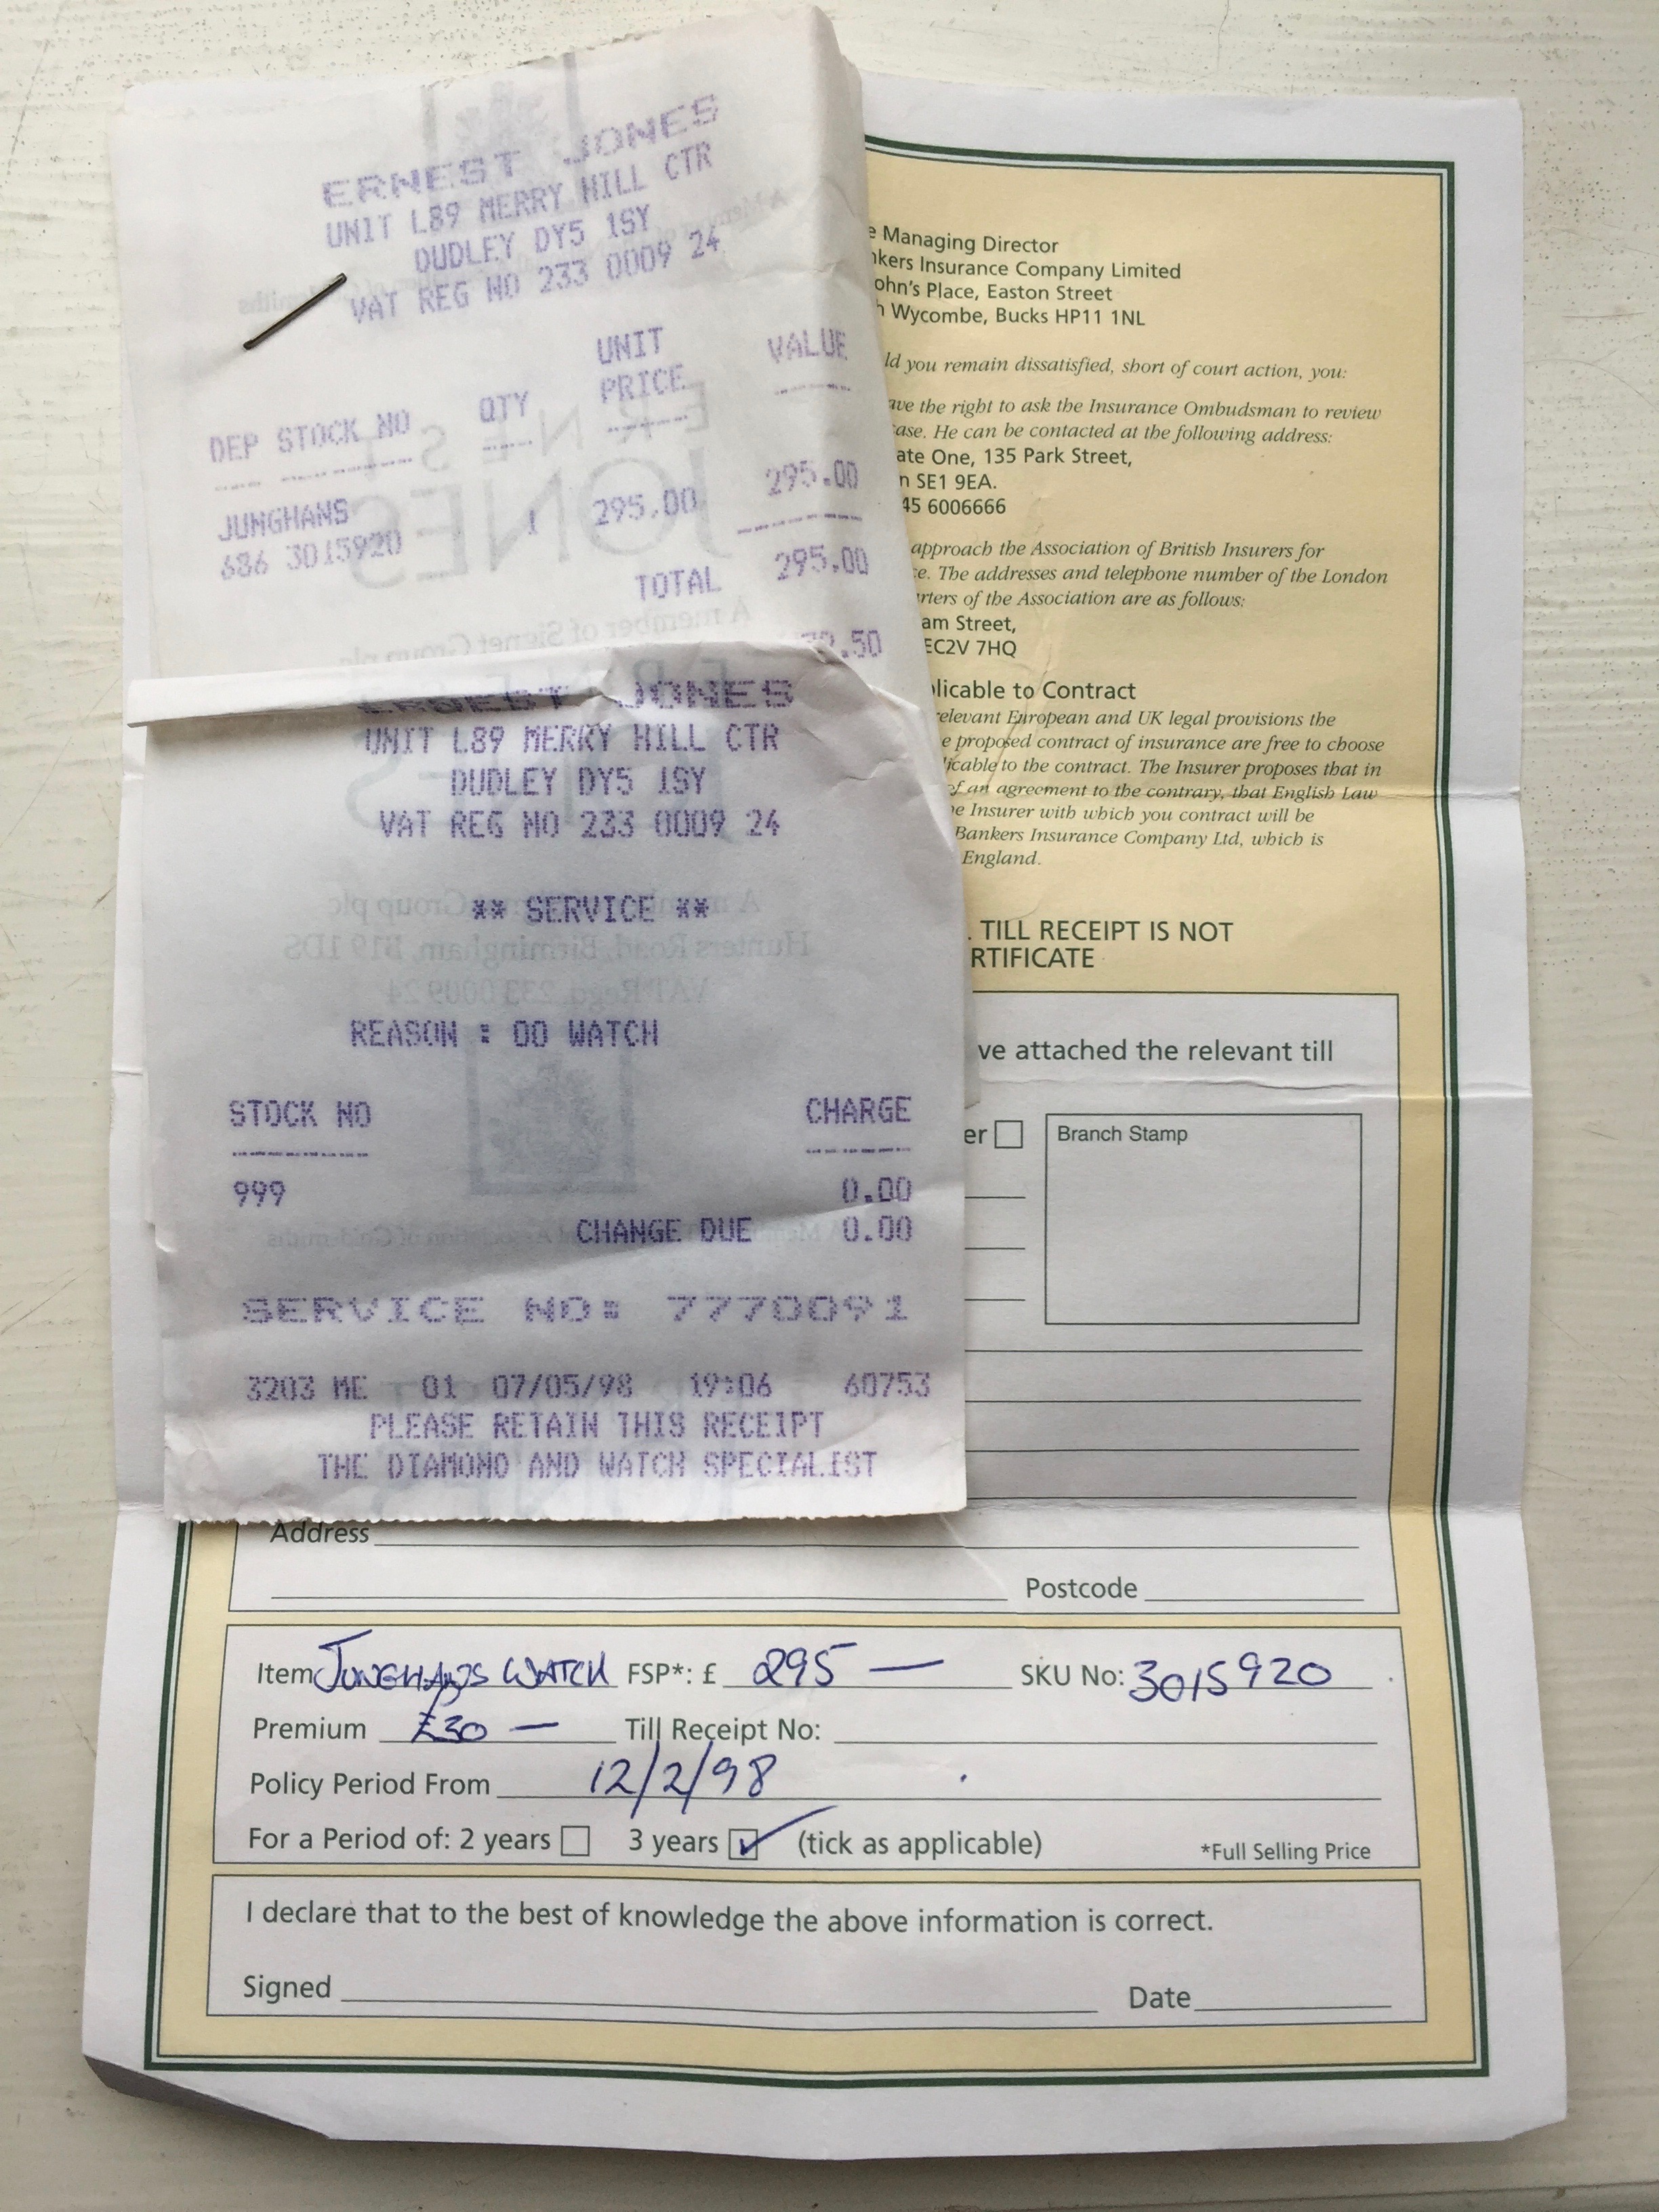 ERNEST JONES
UNIT L89 MERRY HILL CTR
DUDLEY DY5 1SY
VAT REG NO 233 0009 24
UNIT
PRICE VALUE
DEP STOCK NO QTY
JUNGHANS
686 3015920 1 295.00 295.00
TOTAL 295.00
.50
ERNEST JONES
UNIT L89 MERRY HILL CTR
DUDLEY DY5 1SY
VAT REG NO 233 0009 24
** SERVICE **
REASON : 00 WATCH
STOCK NO CHARGE
999 0.00
CHANGE DUE 0.00
SERVICE NO: 7770091
3203 ME 01 07/05/98 19:06 60753
PLEASE RETAIN THIS RECEIPT
THE DIAMOND AND WATCH SPECIALIST
e Managing Director
nkers Insurance Company Limited
ohn's Place, Easton Street
h Wycombe, Bucks HP11 1NL
ld you remain dissatisfied, short of court action, you:
ave the right to ask the Insurance Ombudsman to review
ase. He can be contacted at the following address:
ate One, 135 Park Street,
n SE1 9EA.
45 6006666
approach the Association of British Insurers for
e. The addresses and telephone number of the London
rters of the Association are as follows:
am Street,
EC2V 7HQ
licable to Contract
relevant European and UK legal provisions the
e proposed contract of insurance are free to choose
licable to the contract. The Insurer proposes that in
of an agreement to the contrary, that English Law
e Insurer with which you contract will be
Bankers Insurance Company Ltd, which is
England.
. TILL RECEIPT IS NOT
RTIFICATE
ve attached the relevant till
er
Branch Stamp
Address
Postcode
Item JUNGHANS WATCH FSP*: £ 295 — SKU No: 3015920
Premium £30 — Till Receipt No:
Policy Period From 12/2/98
For a Period of: 2 years 3 years ✓ (tick as applicable) *Full Selling Price
I declare that to the best of knowledge the above information is correct.
Signed Date